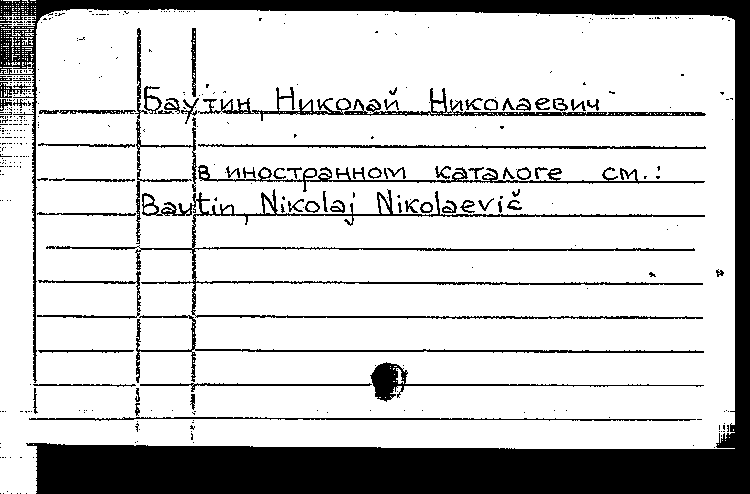 Баутин, Николай Николаевич
в иностранном каталоге см.:
Bautin, Nikolaj Nikolaevič